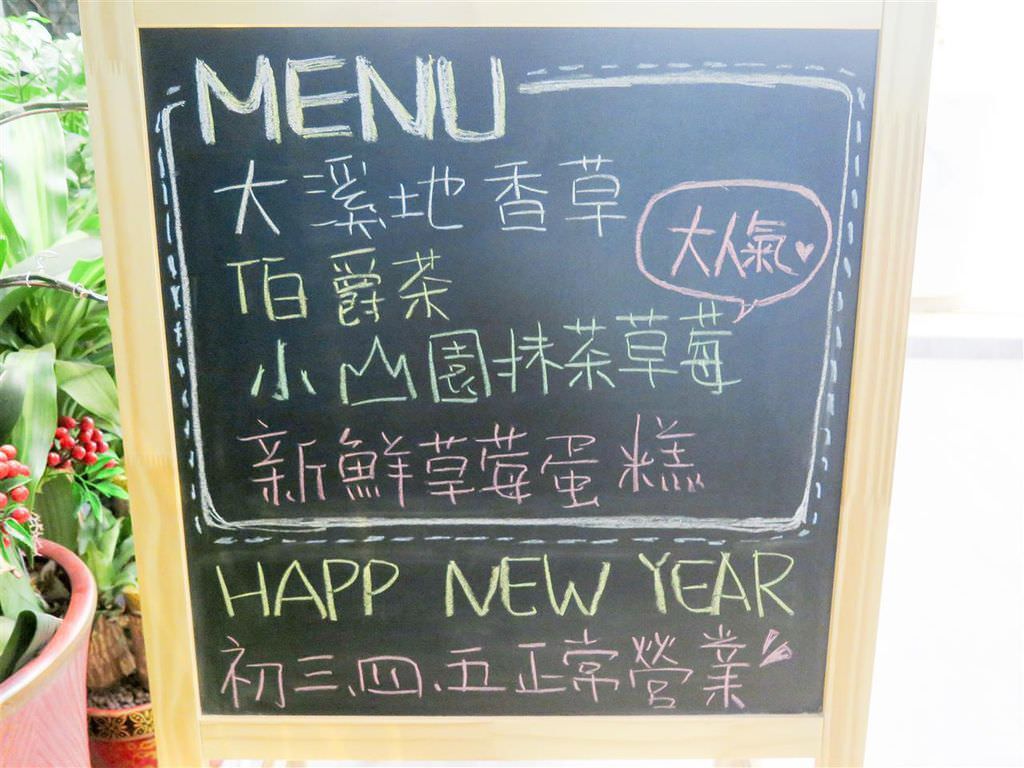 MENU
大溪地香草
大人氣♥
伯爵茶
小山園抹茶草莓
新鮮草莓蛋糕
HAPP NEW YEAR
初三、四、五正常營業